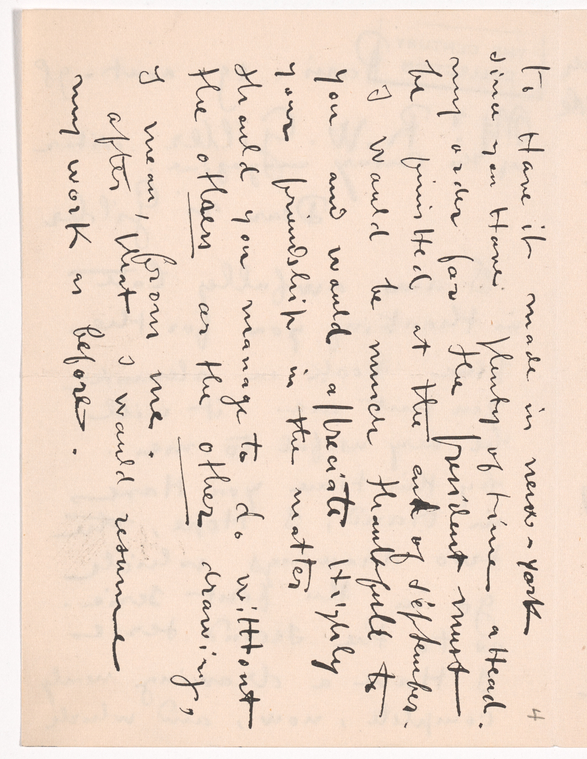 to Have it made in new-york
since you Have plenty of time aHead.
my order for the president must
be finisHed at the end of September.
I would be much tHankfull to
you and would appreciate HigHly
your friendship in the matter
should you manage to do witHout
the otHers or the other drawing,
I mean, from me.
after that I would resume
my work as before.
4